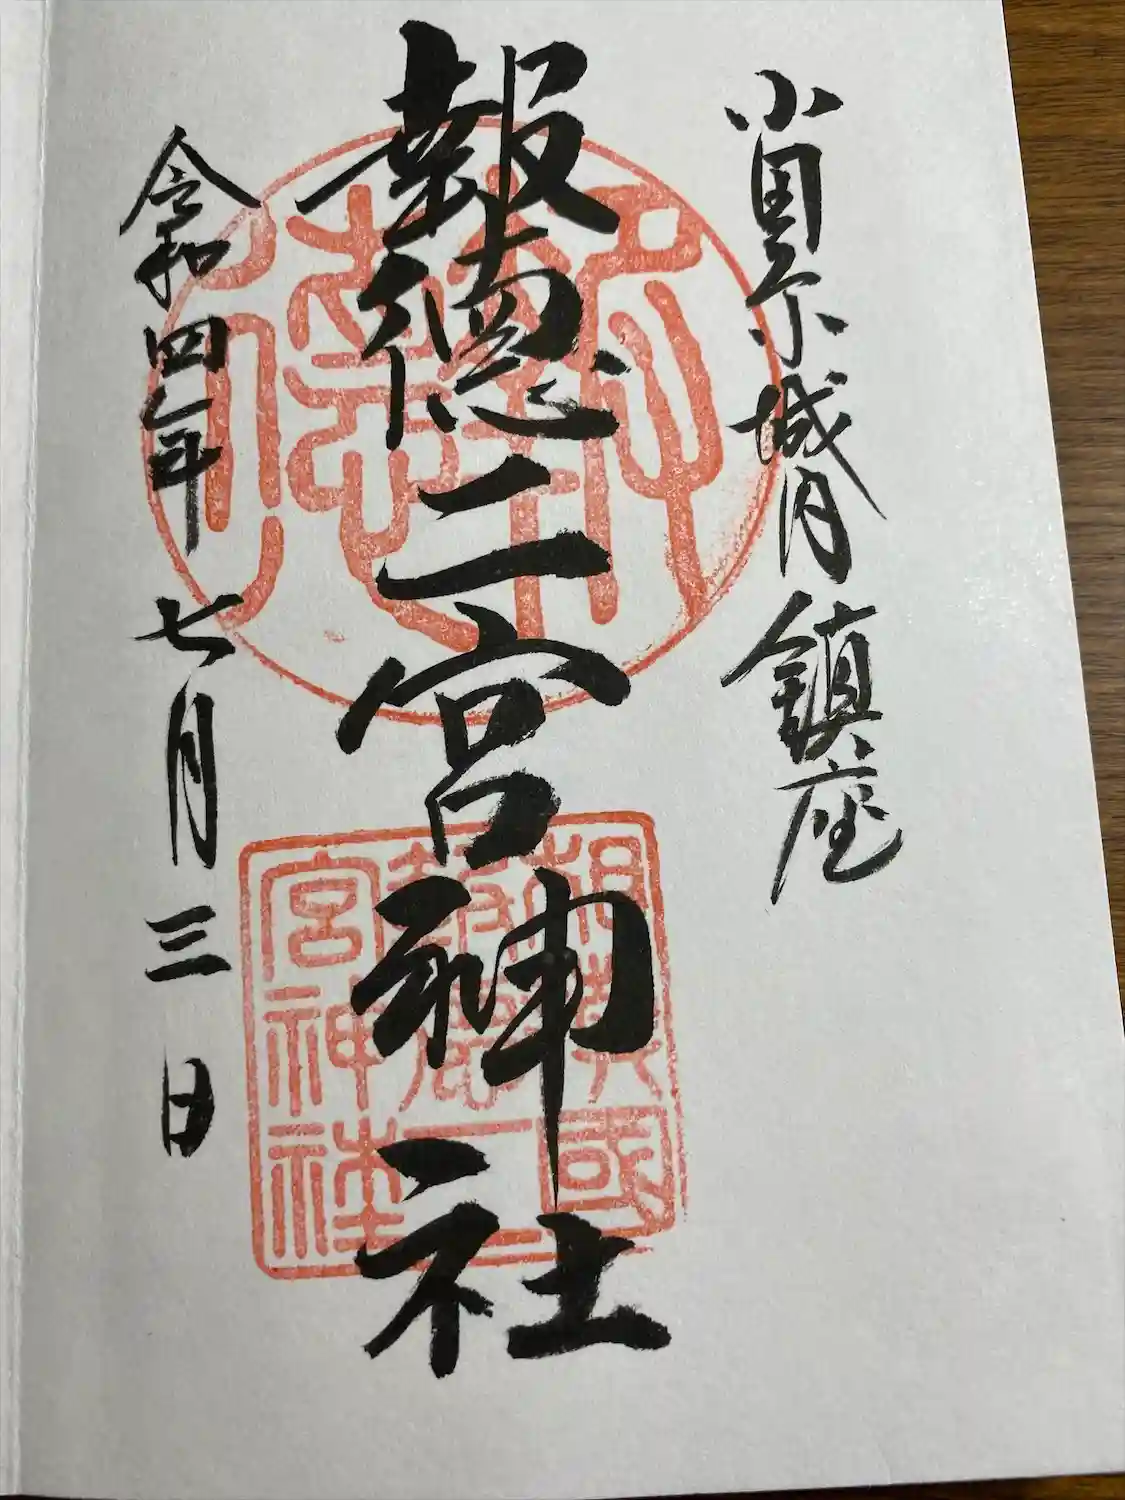 小田原城内鎮座
報徳二宮神社
令和四年七月三日
相模國
報徳二
宮神社